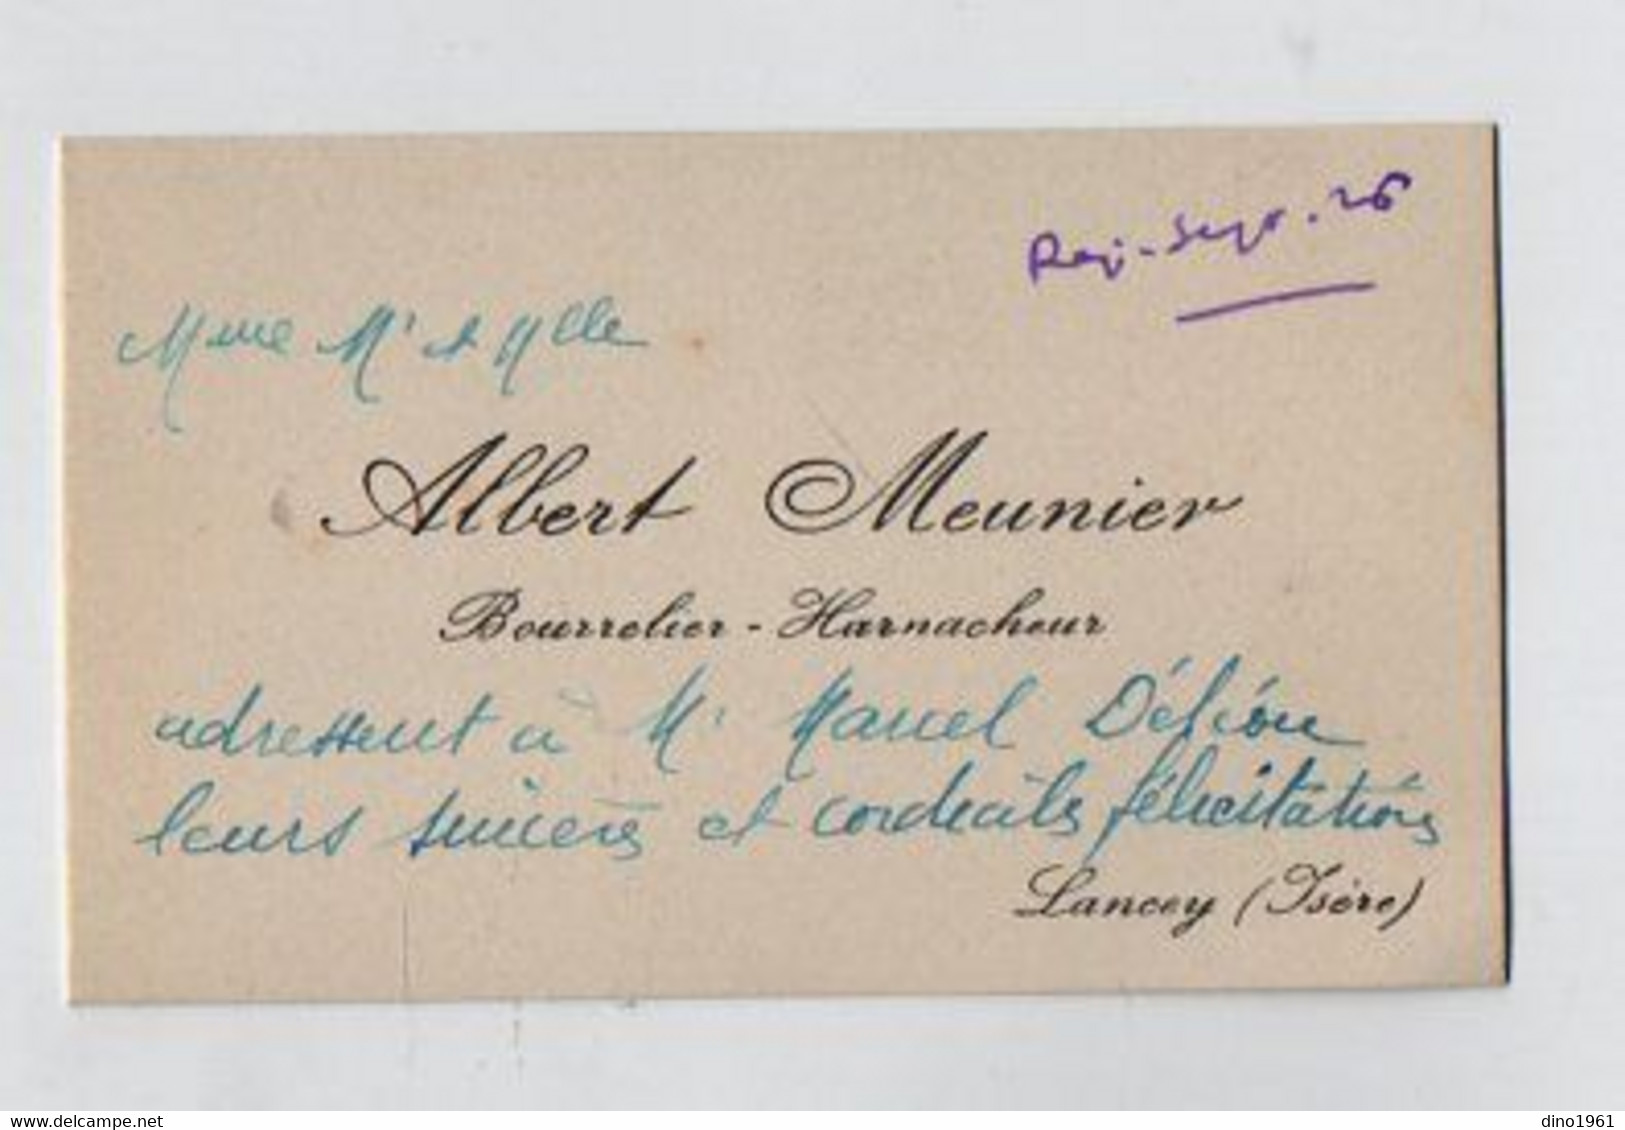 Rep. Sept. 26
Mme Mr et Mlle
Albert Meunier
Bourrelier - Harnacheur
adressent à Mr Marcel
leurs sincères et cordiales félicitations
Lancey (Isère)
www.delcampe.net
dino1961